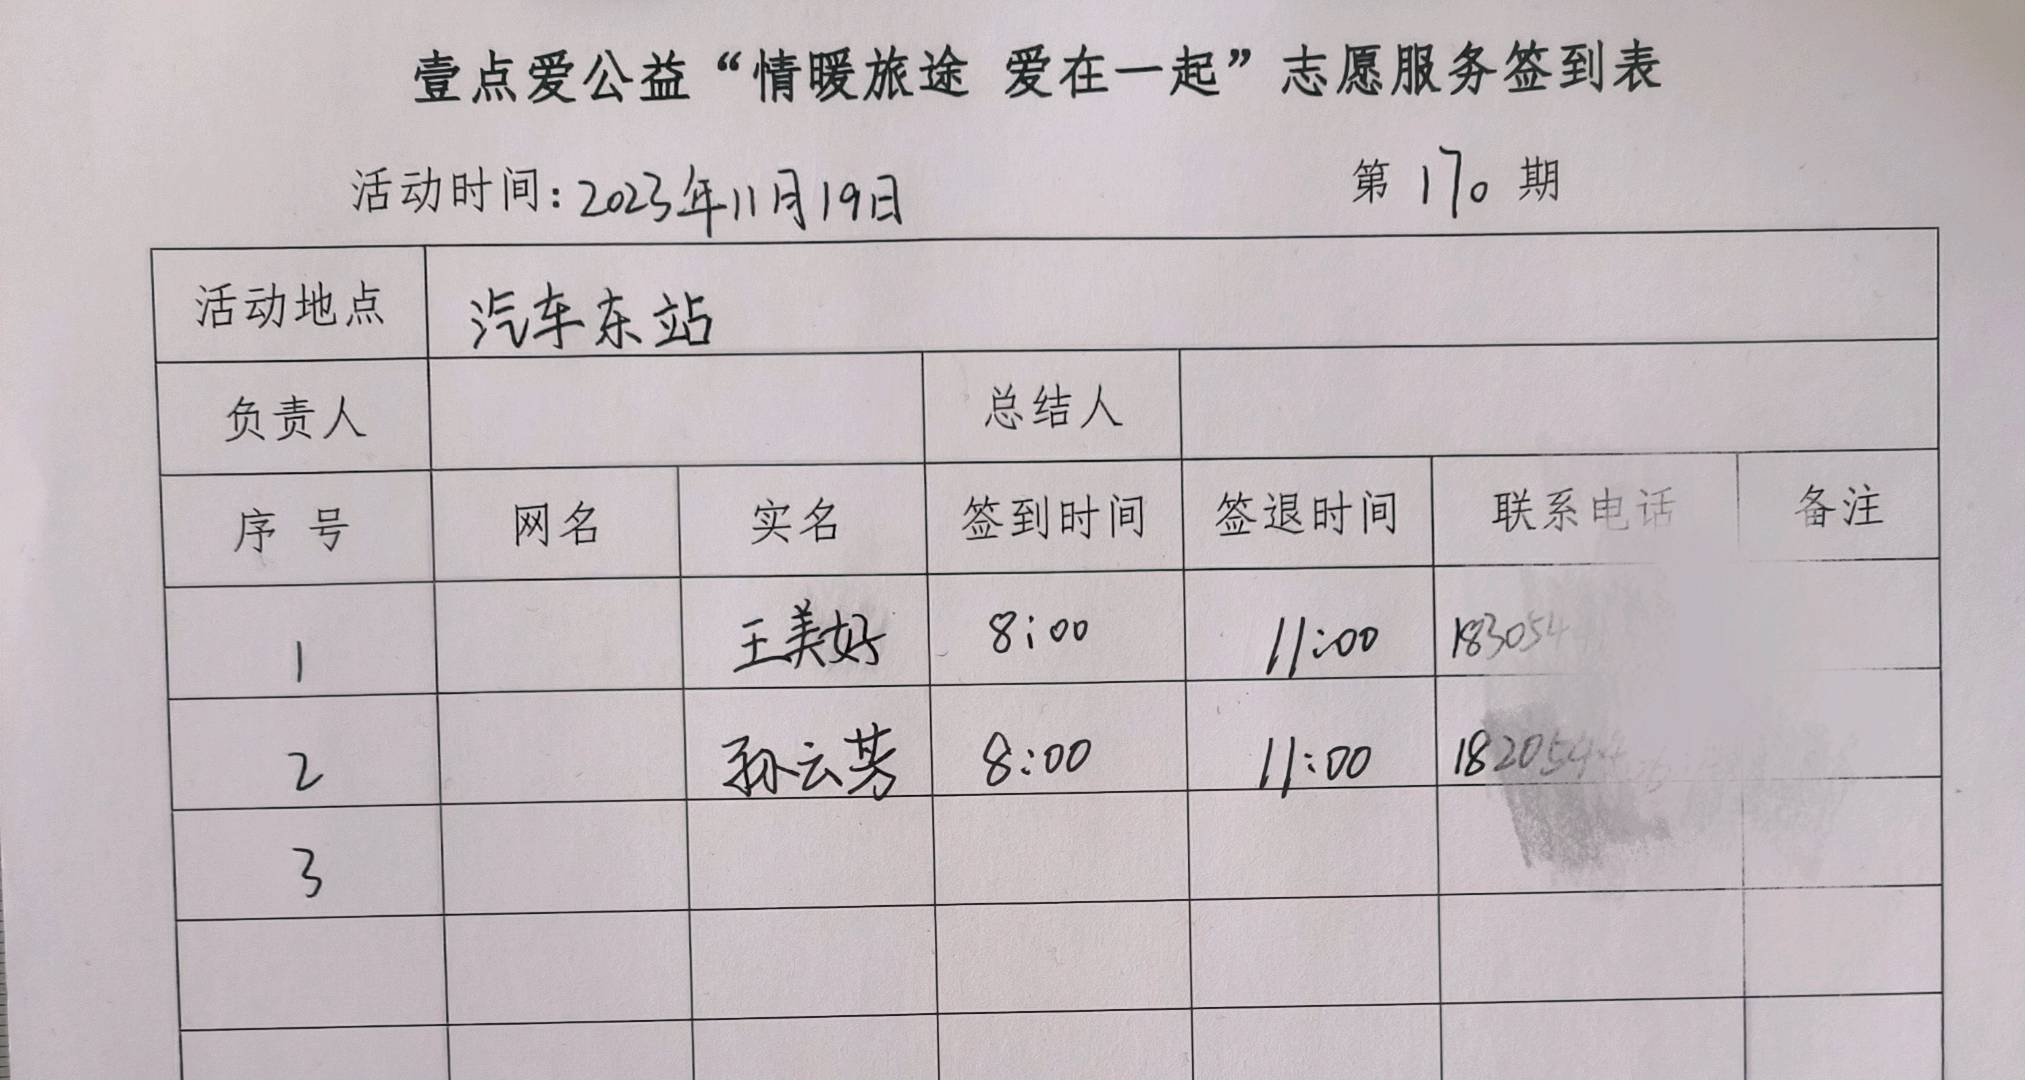 壹点爱公益“情暖旅途 爱在一起”志愿服务签到表
活动时间：2023年11月19日 第170期
活动地点 汽车东站
负责人 总结人
序号 网名 实名 签到时间 签退时间 联系电话 备注
1 王美好 8:00 11:00 183054
2 孙云芳 8:00 11:00 1820544
3